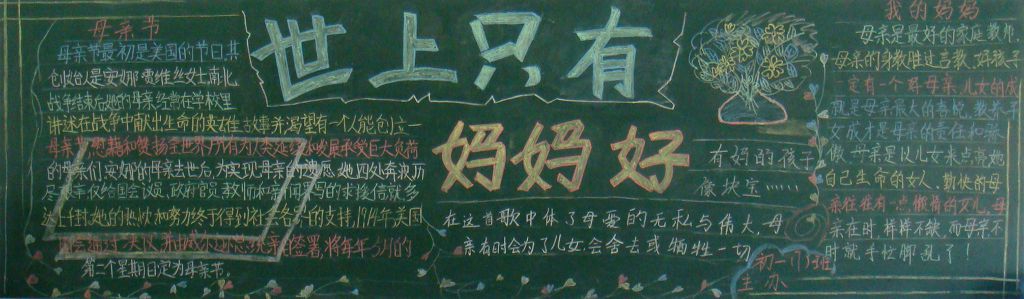 母亲节
母亲节最初是美国的节日其
创始人是安娜 贾维丝女士南北
战争结束后她的母亲经常在学校里
讲述在战争中献出生命的英雄故事并渴望有一个人能创立一
母亲节,慰藉和赞扬全世界所有为人类延续和发展承受巨大负荷
的母亲们,安娜的母亲去世后,为实现母亲的遗愿,她四处奔波历
尽艰辛仅给国会议员、政府官员、教师和亲
上千封,她的热忱和努力终于得到社会各界的支持,1914年,美国
签署,将每年5月的
第二个星期日定为母亲节。
世上只有
妈妈好
有妈的孩子
像块宝……
在这首歌中体了母爱的无私与伟大,母
亲有时会为了儿女会舍去或牺牲一切
初一(1)班
主办
我的妈妈
母亲是最好的家庭教师,
母亲的身教胜过言教,好孩子
一定有一个好母亲,儿女的成
就是母亲最大的喜悦,教养子
女成才是母亲的责任和骄
傲,母亲是以儿女来点缀她
自己生命的女人,勤快的母
亲往往有一点懒惰的女儿,母
亲在时,样样不缺,而母亲不
时就手忙脚乱了!